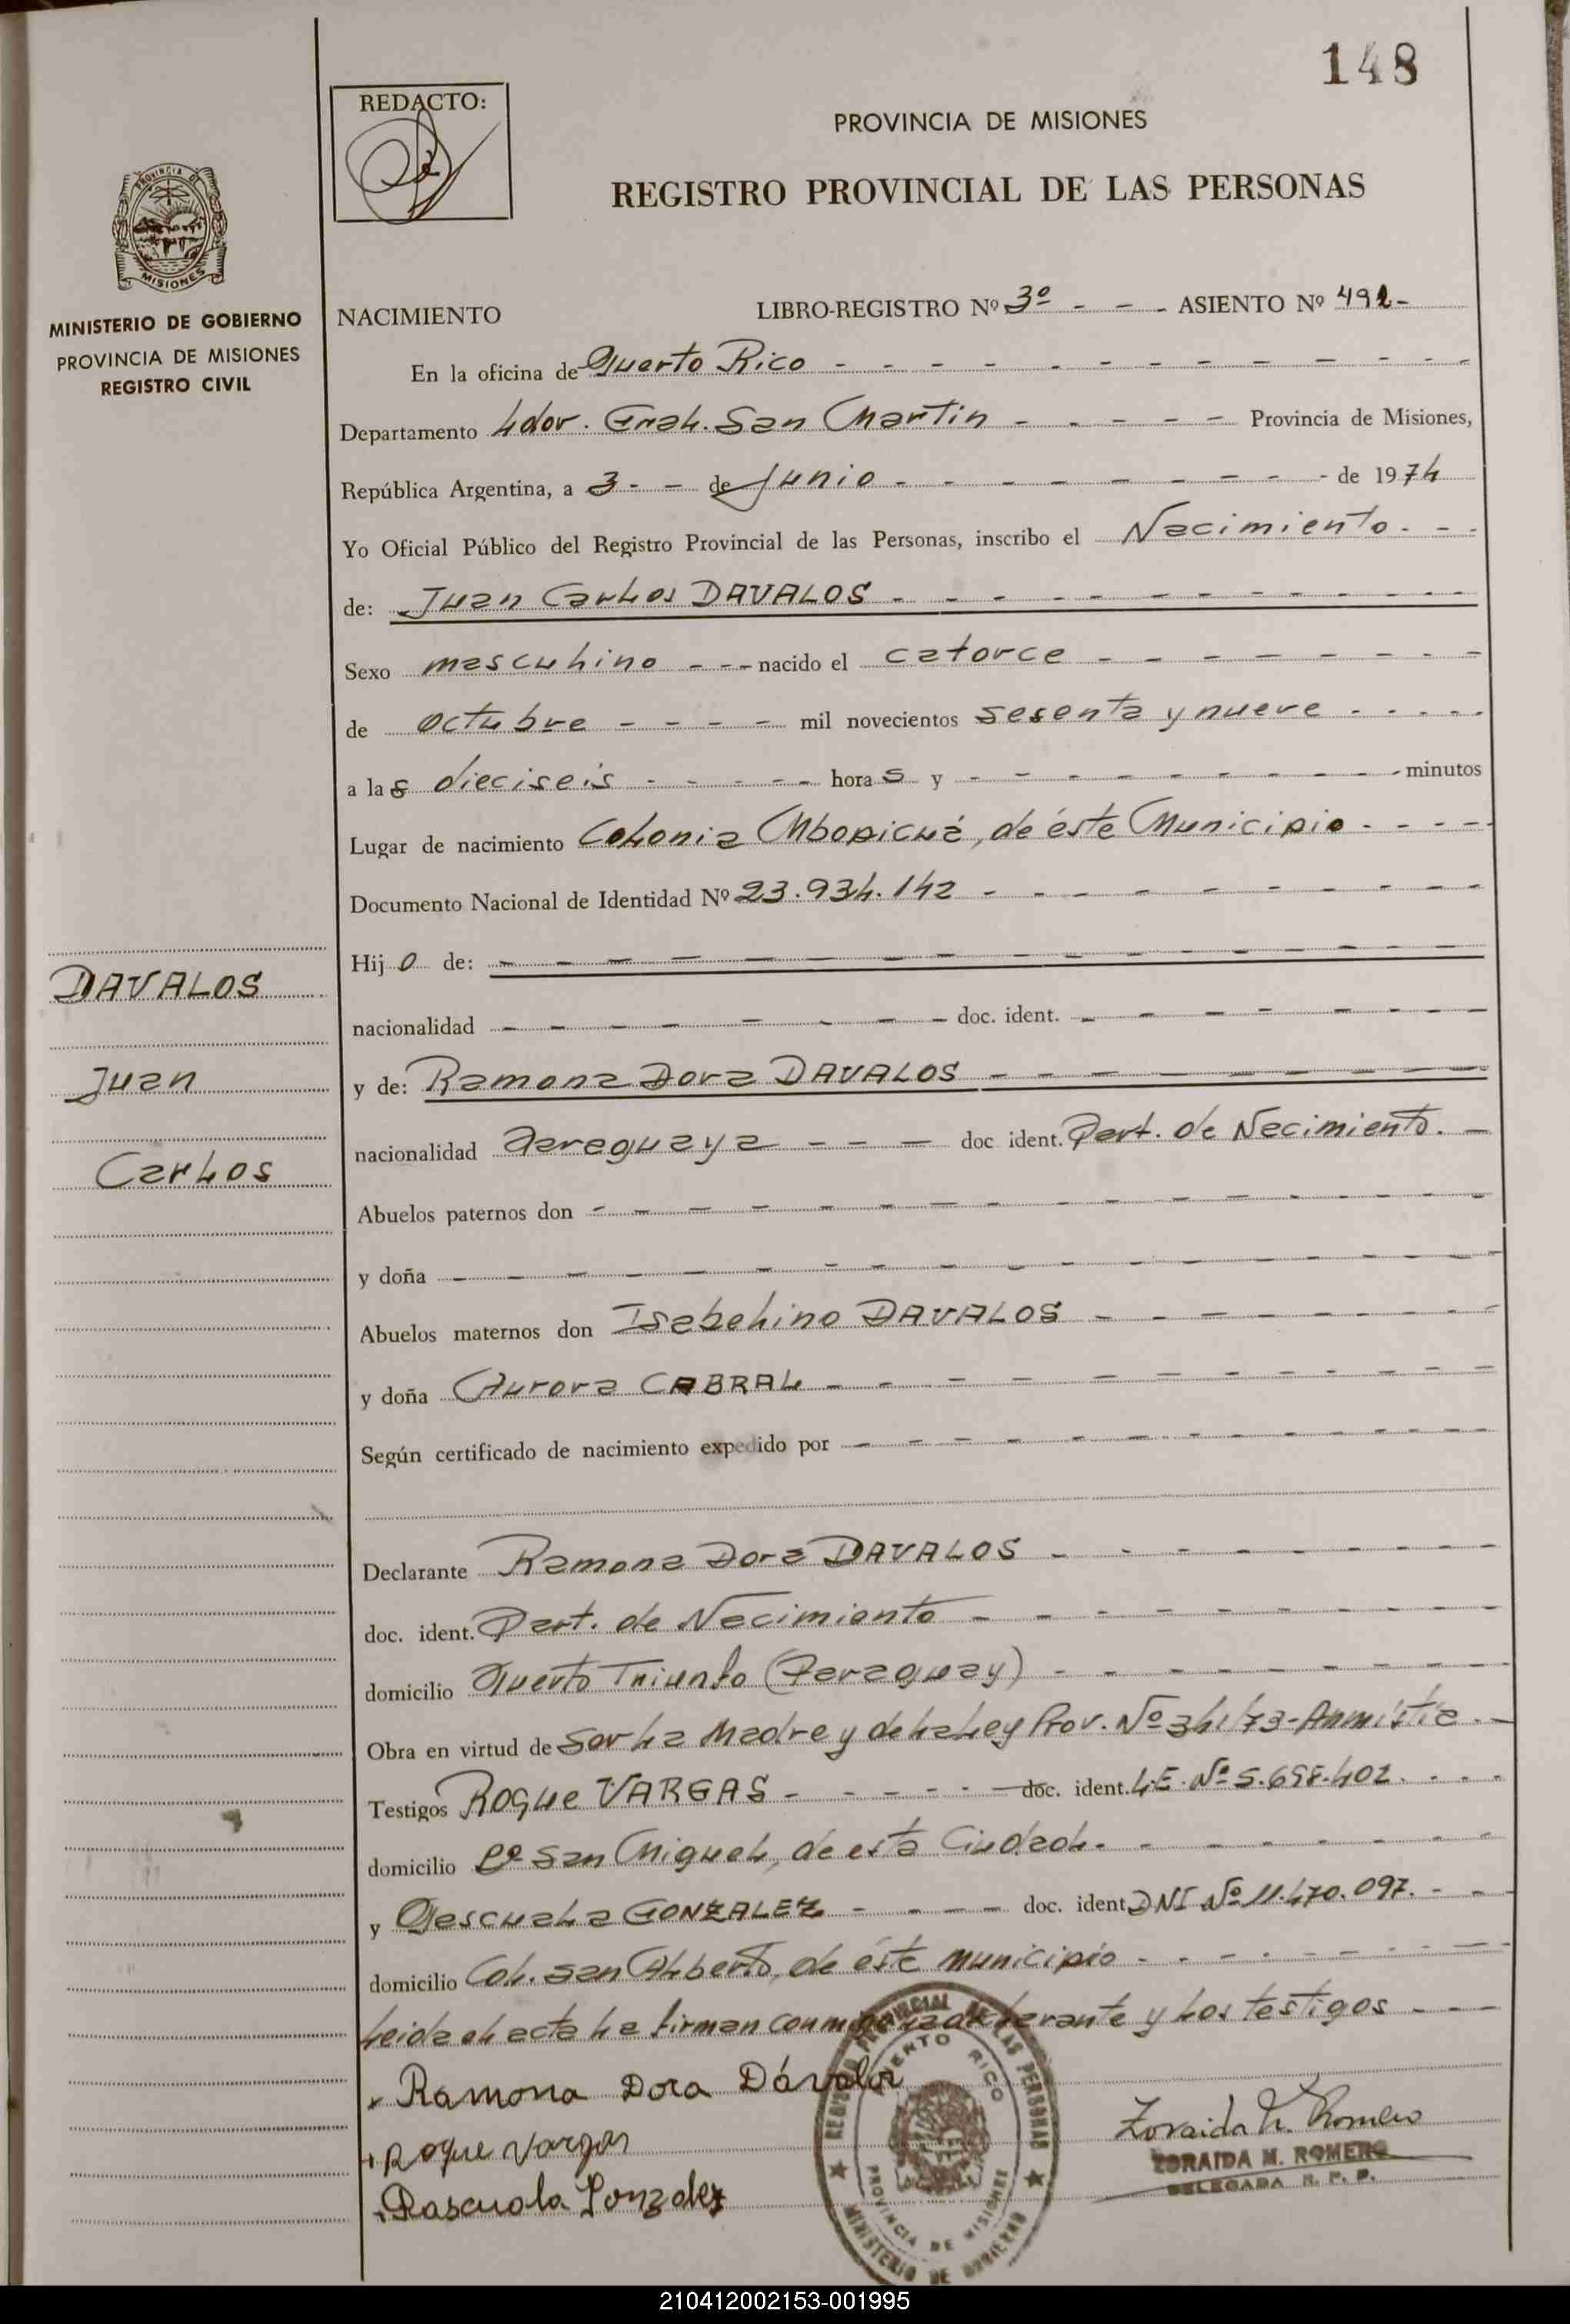 148
REDACTO:
PROVINCIA DE MISIONES
REGISTRO PROVINCIAL DE LAS PERSONAS
PROVINCIA DE
MISIONES
MINISTERIO DE GOBIERNO
PROVINCIA DE MISIONES
REGISTRO CIVIL
NACIMIENTO LIBRO-REGISTRO Nº 3º - - - ASIENTO Nº 492-
En la oficina de Puerto Rico - - - - - - - - - - -
Departamento Ldor. Gral. San Martin - - - - - Provincia de Misiones,
República Argentina, a 3 - - de Junio - - - - - - - - - de 1974
Yo Oficial Público del Registro Provincial de las Personas, inscribo el Nacimiento - - -
de: Juan Carlos DAVALOS - - - - - - - - - - - -
Sexo masculino - - - nacido el catorce - - - - - - - -
de octubre - - - - mil novecientos sesenta y nueve - - - - -
a las dieciseis - - - - - horas y - - - - - - - - - minutos
Lugar de nacimiento Colonia Mbopicuá, de éste Municipio - - - -
Documento Nacional de Identidad Nº 23.934.142 - - - - - - - - -
Hijo de: - - - - - - - - - - - - - -
nacionalidad - - - - - - - - doc. ident. - - - - - - -
y de: Ramona Dora DAVALOS - - - - - - - - -
nacionalidad Paraguaya - - - doc ident. Part. de Nacimiento. -
Abuelos paternos don - - - - - - - - - - - - - - -
y doña - - - - - - - - - - - - - - - - -
Abuelos maternos don Isabelino DAVALOS - - - - - - - -
y doña Aurora CABRAL - - - - - - - - - - -
Según certificado de nacimiento expedido por - - - - - - - - - - - -
Declarante Ramona Dora DAVALOS - - - - - - - - -
doc. ident. Part. de Nacimiento - - - - - - - - - -
domicilio Puerto Triunfo (Paraguay) - - - - - - - - -
Obra en virtud de ser la Madre y de la Ley Prov. Nº 341/73-Amnistia. -
Testigos Roque VARGAS - - - - - - doc. ident. L.E. Nº 5.698.402. - - -
domicilio Pº San Miguel, de esta Ciudad. - - - - - - - -
y Pascuala GONZALEZ - - - - - doc. ident. DNI Nº 11.470.097. - - -
domicilio Col. San Alberto, de éste municipio - - - - - - - - -
Leida el acta la firman conmigo la declarante y los testigos - - -
Ramona Dora Dávalos
Roque Vargas
Pascuala Gonzalez
REGISTRO PROVINCIAL DE LAS PERSONAS
PUERTO RICO
PROVINCIA DE MISIONES
MINISTERIO DE GOBIERNO
Zoraida M. Romero
ZORAIDA M. ROMERO
DELEGADA R. P. P.
DAVALOS
Juan
Carlos
210412002153-001995